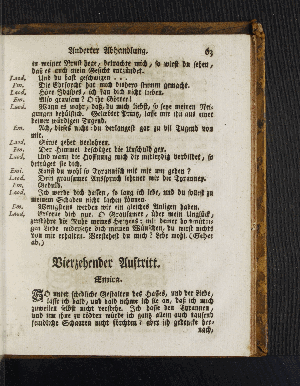 Anderter Abhandlung. 63
in meiner Brust hege, betrachte mich, so wirst du sehen,
daß es auch mein Gesicht entzündet.
Laod. Und du hast geschwigen ...
Em. Die Ehrforcht hat mich bishero stumm gemacht.
Laod. Höre Idaspes, ich kan dich nicht lieben.
Em. Also grausam? O ihr Götter!
Laod. Wann es wahr, daß du mich liebst, so seye meinen Nei-
gungen behülflich. Geliebter Printz, lasse mir ihn aus einer
würdiger Tugend.
Em. Ach, dieses nicht: du verlangest gar zu vil Tugend von
mir.
Laod. Sirve gehet verlohren.
Em. Der Himmel beschützet die Unschuld
Laod. Und wann die Hoffnung mich dir mitleydig vorbildet, so
betrüget sie dich.
Emi. Kanst du wohl so Tyrannisch mit mir um gehen?
Laod. Dem grausamer Ausspruch lehrnet mich die Tyranney.
Em. Gedult.
Laod. Ich werde dich hassen, so lang ich lebe, und du sollest zu
meinem Schaden nicht lachen können.
Em. Wenigstens werden wir ein gleiches Anligen haben.
Laod. Erfreue dich nur. O Grausamer, über mein Unglück,
zerstöhre die Ruhe meines Hertzens; mit deiner
gen Liebe widersetze dich meinen Wünschen, du wirst nichts
von mir erhalten. Verstehest du mich? Lebe wohl. (Gehet
ab.)
Vierzehender Auftritt.
Emira.
SO unter schidliche Gestalten des Hasses, und der Liebe,
fasse ich bald, und bald nehme ich sie an, daß ich mich
zuweilen selbst nicht verstehe. Ich hasse den Tyrannen,
und um ihne zu tödten würde ich gantz allein auch tausend
feindliche Schaaren nicht förchten: aber ich gedencke her-
nach,